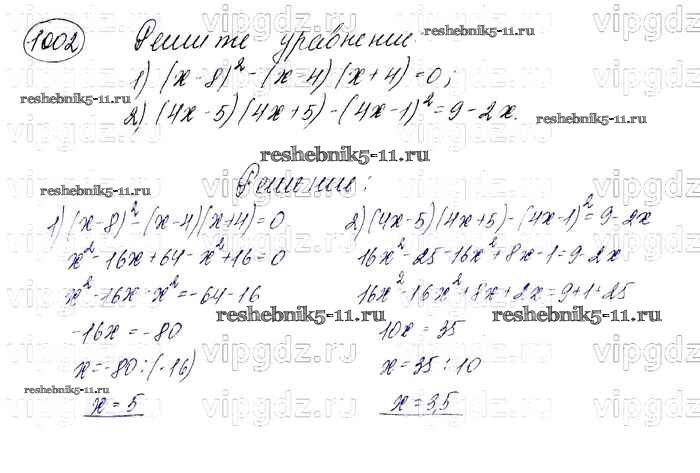 1002 Решите уравнение:
1) (x-8)² - (x-4)(x+4)=0;
2) (4x-5)(4x+5)-(4x-1)²=9-2x.
Решение:
1) (x-8)² - (x-4)(x+4)=0
x²-16x+64-x²+16=0
x²-16x-x²=-64-16
-16x=-80
x=-80:(-16)
x=5
2) (4x-5)(4x+5)-(4x-1)²=9-2x
16x²-25-16x²+8x-1=9-2x
16x²-16x²+8x+2x=9+1+25
10x=35
x=35:10
x=3,5
reshebnik5-11.ru
reshebnik5-11.ru
reshebnik5-11.ru
reshebnik5-11.ru
reshebnik5-11.ru
reshebnik5-11.ru
reshebnik5-11.ru
reshebnik5-11.ru
vipgdz.ru